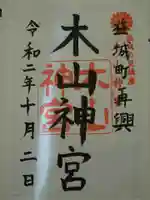 益城町再興
木山神宮
令和二年十月二日
木山
神宮